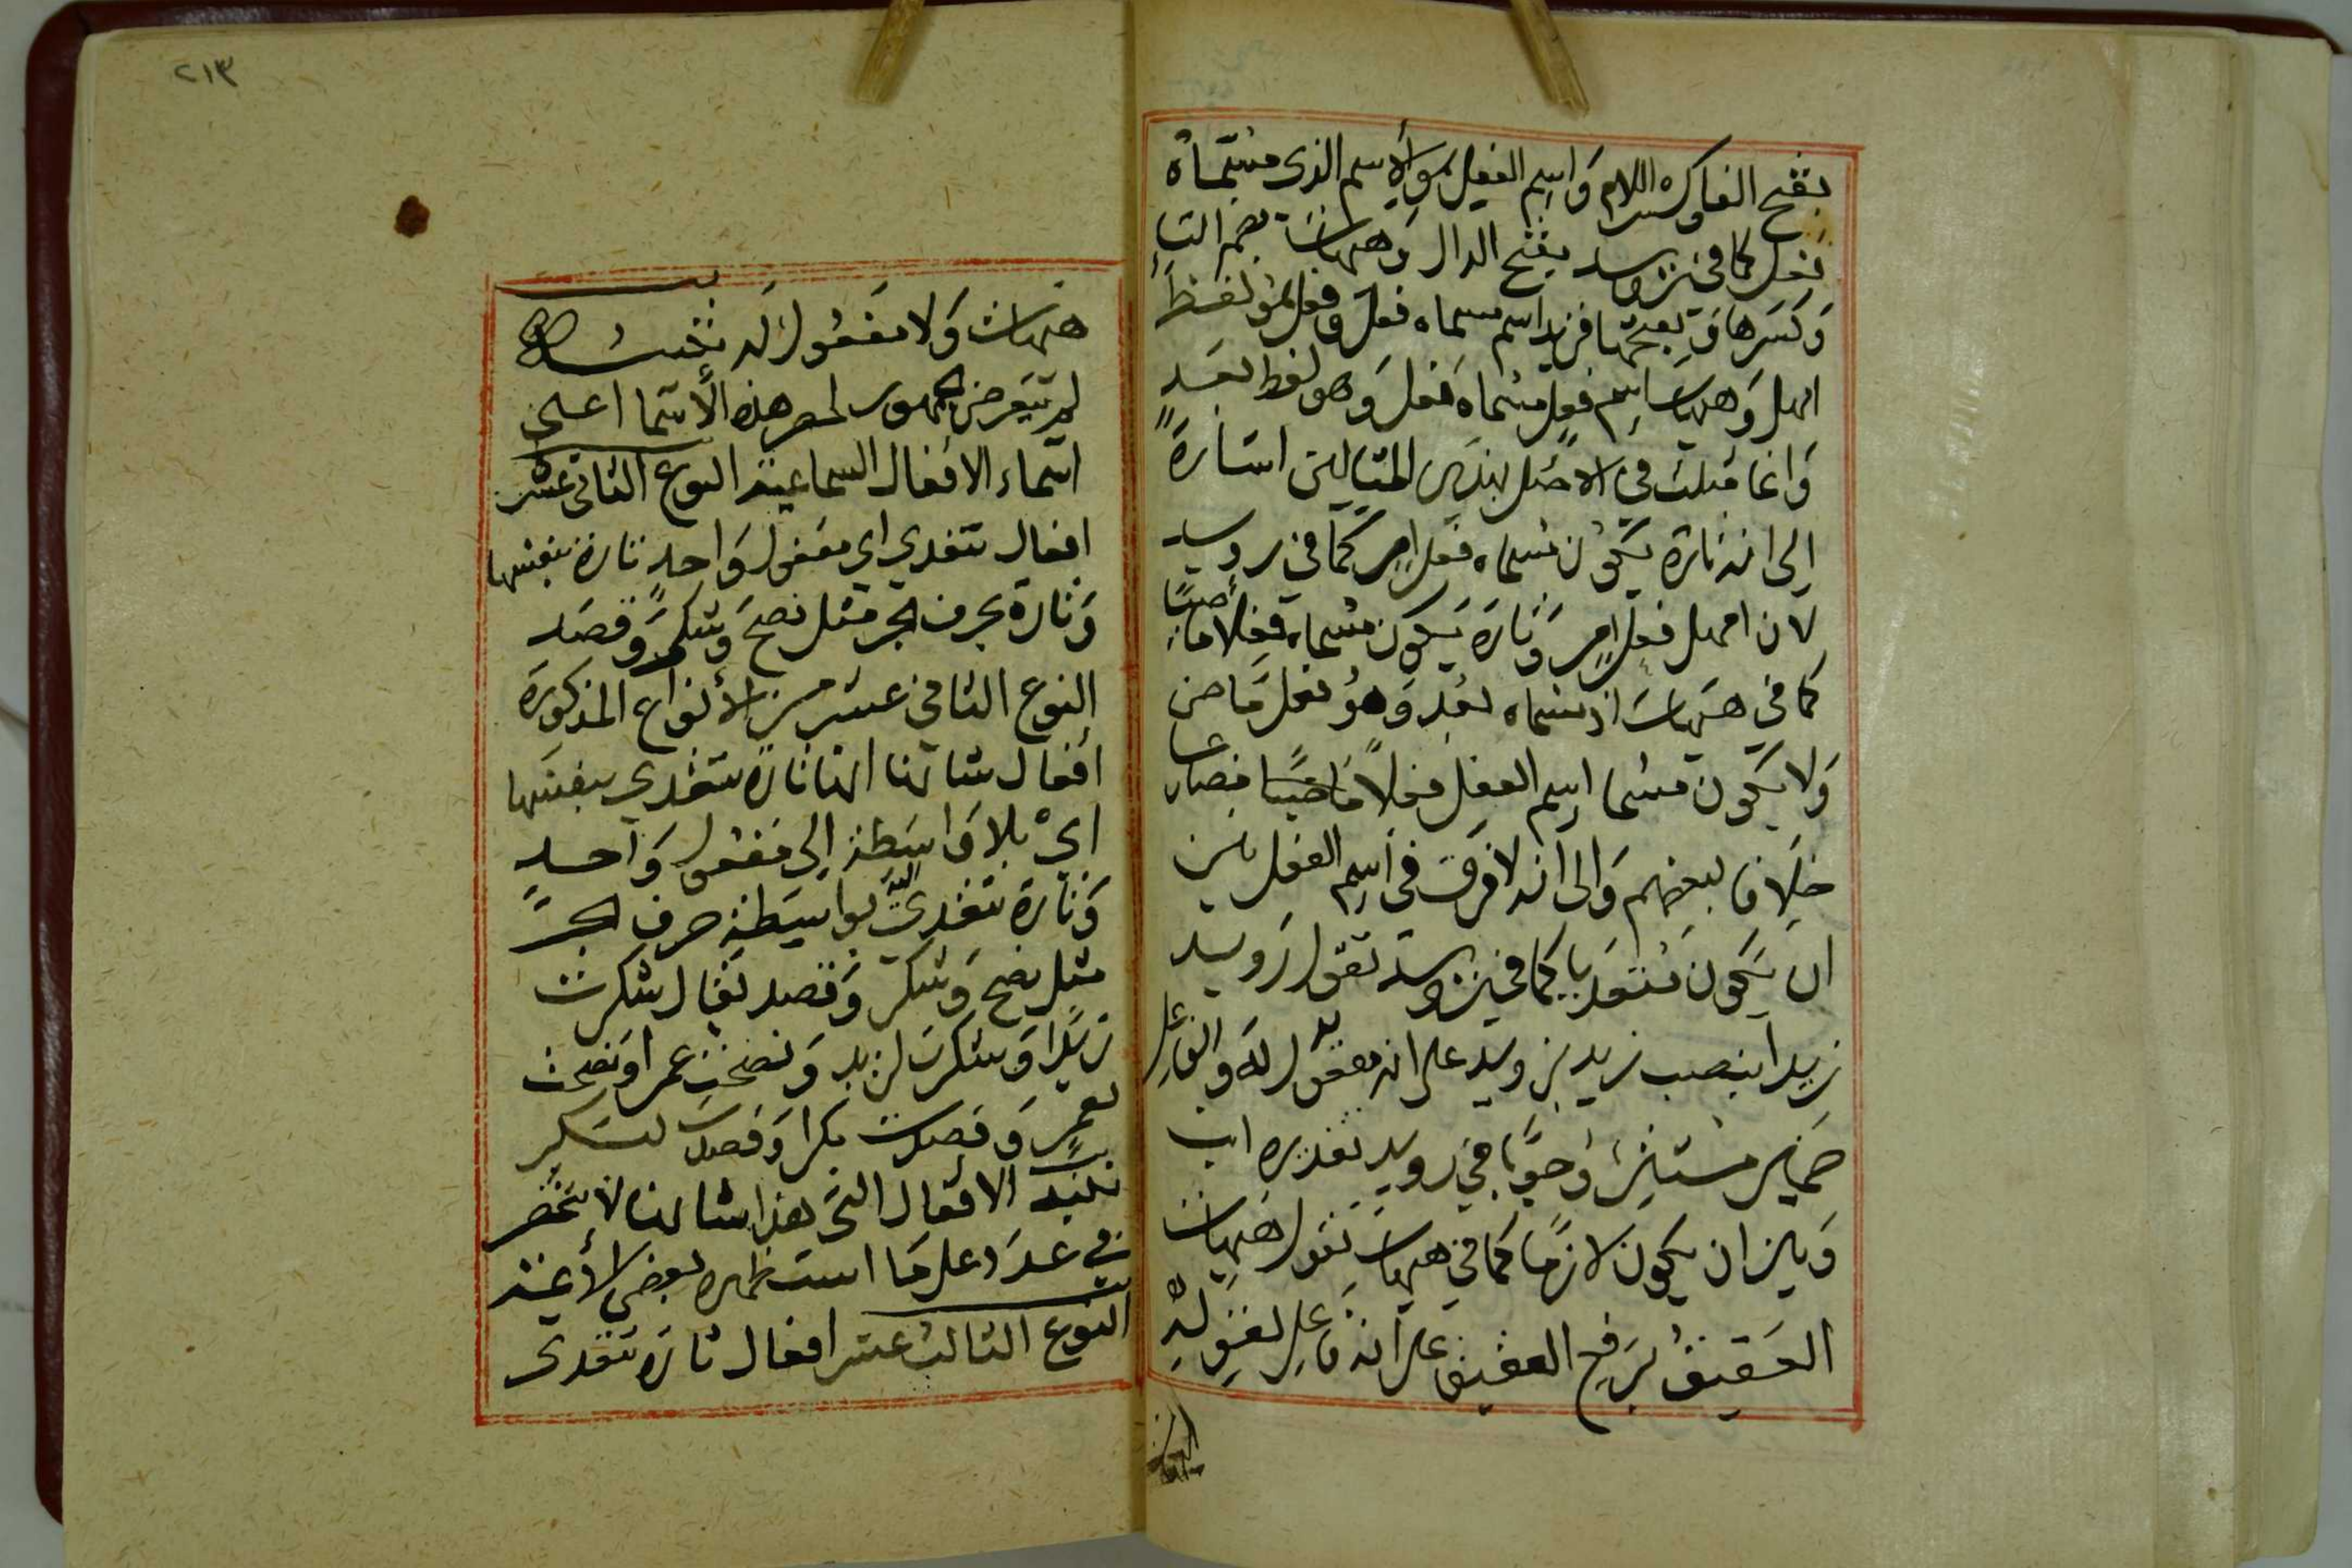 بفتح الفا وكسره اللام واسم الفعل هو الاسم الذى مسماه
فعل كما فى رويد بفتح الدال وهيهات بضم التاء
وكسرها وبفتحها فرويد اسم مسماه فعل وفعل هو لفظ
امهل وهيهات اسم فعل مسماه فعل وهو لفظ بعد
وانما مثلت فى الاصل بهذين المثالين اشارة
الى انه تارة يكون مسماه فعل امر كما فى رويد
لان امهل فعل امر وتارة يكون مسماه فعلا ماضيا
كما فى هيهات اذ مسماه بعد وهو فعل ماض
ولا يكون مسما اسم الفعل فعلا مضارعا
خلافا لبعضهم والى انه لا فرق فى اسم الفعل بين
ان يكون متعديا كما فى رويد تقول رويد
زيدا بنصب زيد برويد على انه مفعول له والفاعل
ضمير مستتر وجوبا فى رويد تقديره انت
وبين ان يكون لازما كما فى هيهات تقول هيهات
العقيق برفع العقيق على انه فاعل لقوله
٢١٣
هيهات ولا مفعول له تنبيه
لم يتعرض الجمهور لحصر هذه الاسما اعنى
اسماء الافعال السماعية النوع الثانى عشر
افعال تتعدي اي مفعول واحد تارة بنفسها
وتارة بحرف الجر مثل نصح وشكر وقصد
النوع الثاني عشر من الأنواع المذكورة
افعال شانها انها تارة تتعدي بنفسها
اي بلا واسطة إلى مفعول واحد
وتارة تتعدي اليه بواسطة حرف الجر
مثل نصح وشكر وقصد تقال شكرت
زيدا وشكرت لزيد ونصحت عمرا ونصحت
لعمر وقصدت بكرا وقصدت لبكر
تنبيه الافعال التى هذا شانها لا تنحصر
فى عدد على ما استظهره بعض الأئمة
النوع الثالث عشر افعال تارة تتعدى